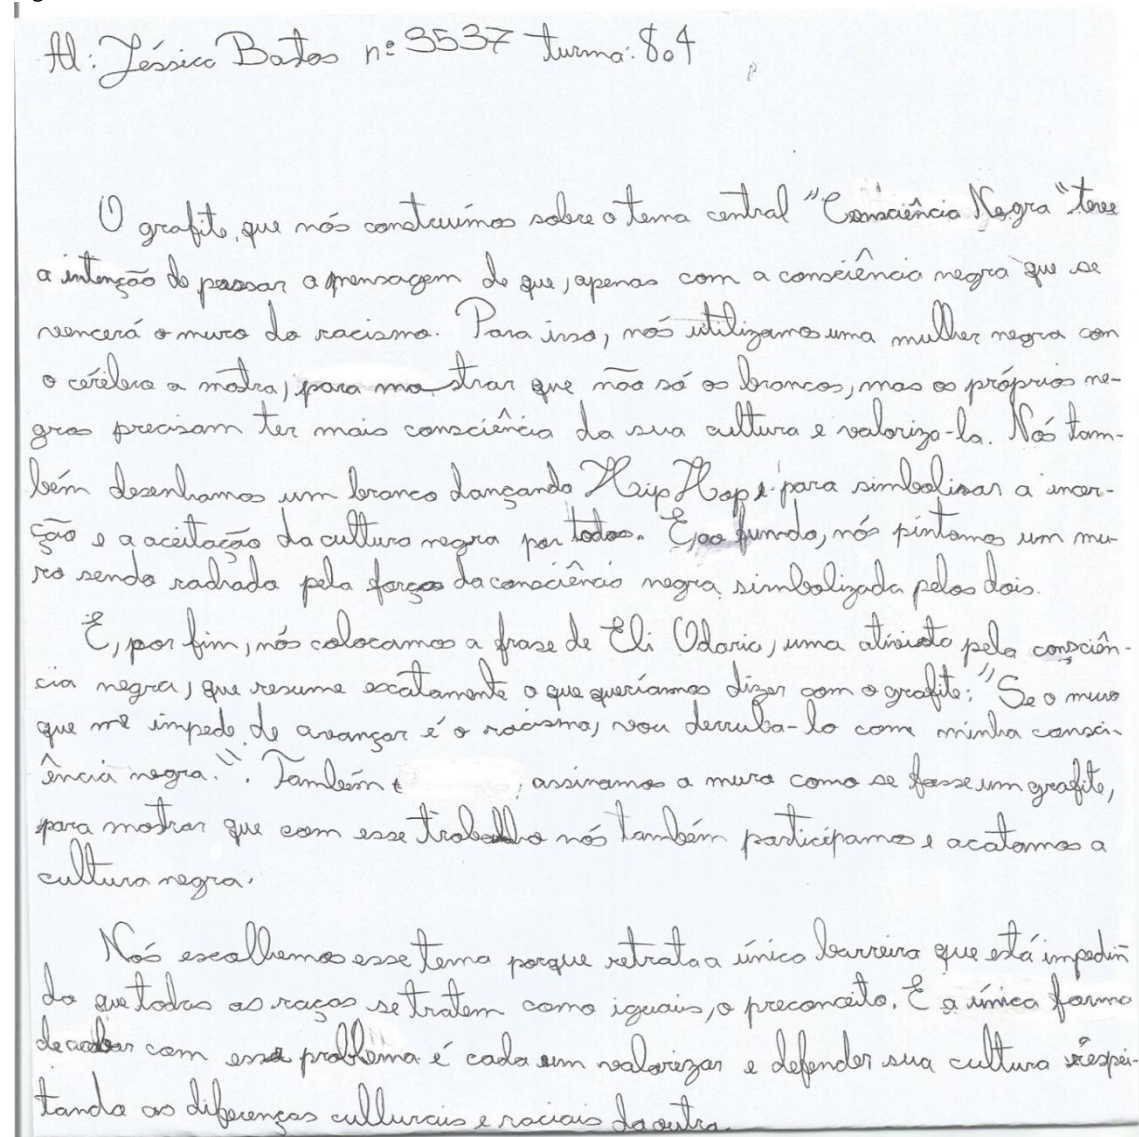 Al: Jéssica Bastos nº 3537 turma: 804
O grafite, que nós construímos sobre o tema central "Consciência Negra" teve
a intenção de passar a mensagem de que, apenas com a consciência negra que se
vencerá o muro do racismo. Para isso, nós utilizamos uma mulher negra con
o cérebro a mostra, para mostrar que não só os brancos, mas os próprios ne-
gros precisam ter mais consciência da sua cultura e valoriza-la. Nós tam-
bém desenhamos um branco dançando Hip Hop para simbolizar a incer-
ção e a aceitação da cultura negra por todos. E, ao fundo, nós pintamos um mu-
ro sendo rachado pela força da consciência negra, simbolizada pelos dois.
E, por fim, nós colocamos a frase de Eli Odara, uma ativista pela consciên-
cia negra, que resume exatamente o que queríamos dizer com o grafite: "Se o muro
que me impede de avançar é o racismo, vou derruba-lo com minha consci-
ência negra.". Também assinamos o muro como se fosse um grafite,
para mostrar que com esse trabalho nós também participamos e acatamos a
cultura negra.
Nós escolhemos esse tema porque retrata a única barreira que está impedin
do que todas as raças se tratem como iguais, o preconceito. E a única forma
de acabar com esse problema é cada um valorizar e defender sua cultura respei-
tando as diferenças culturais e raciais do outro.